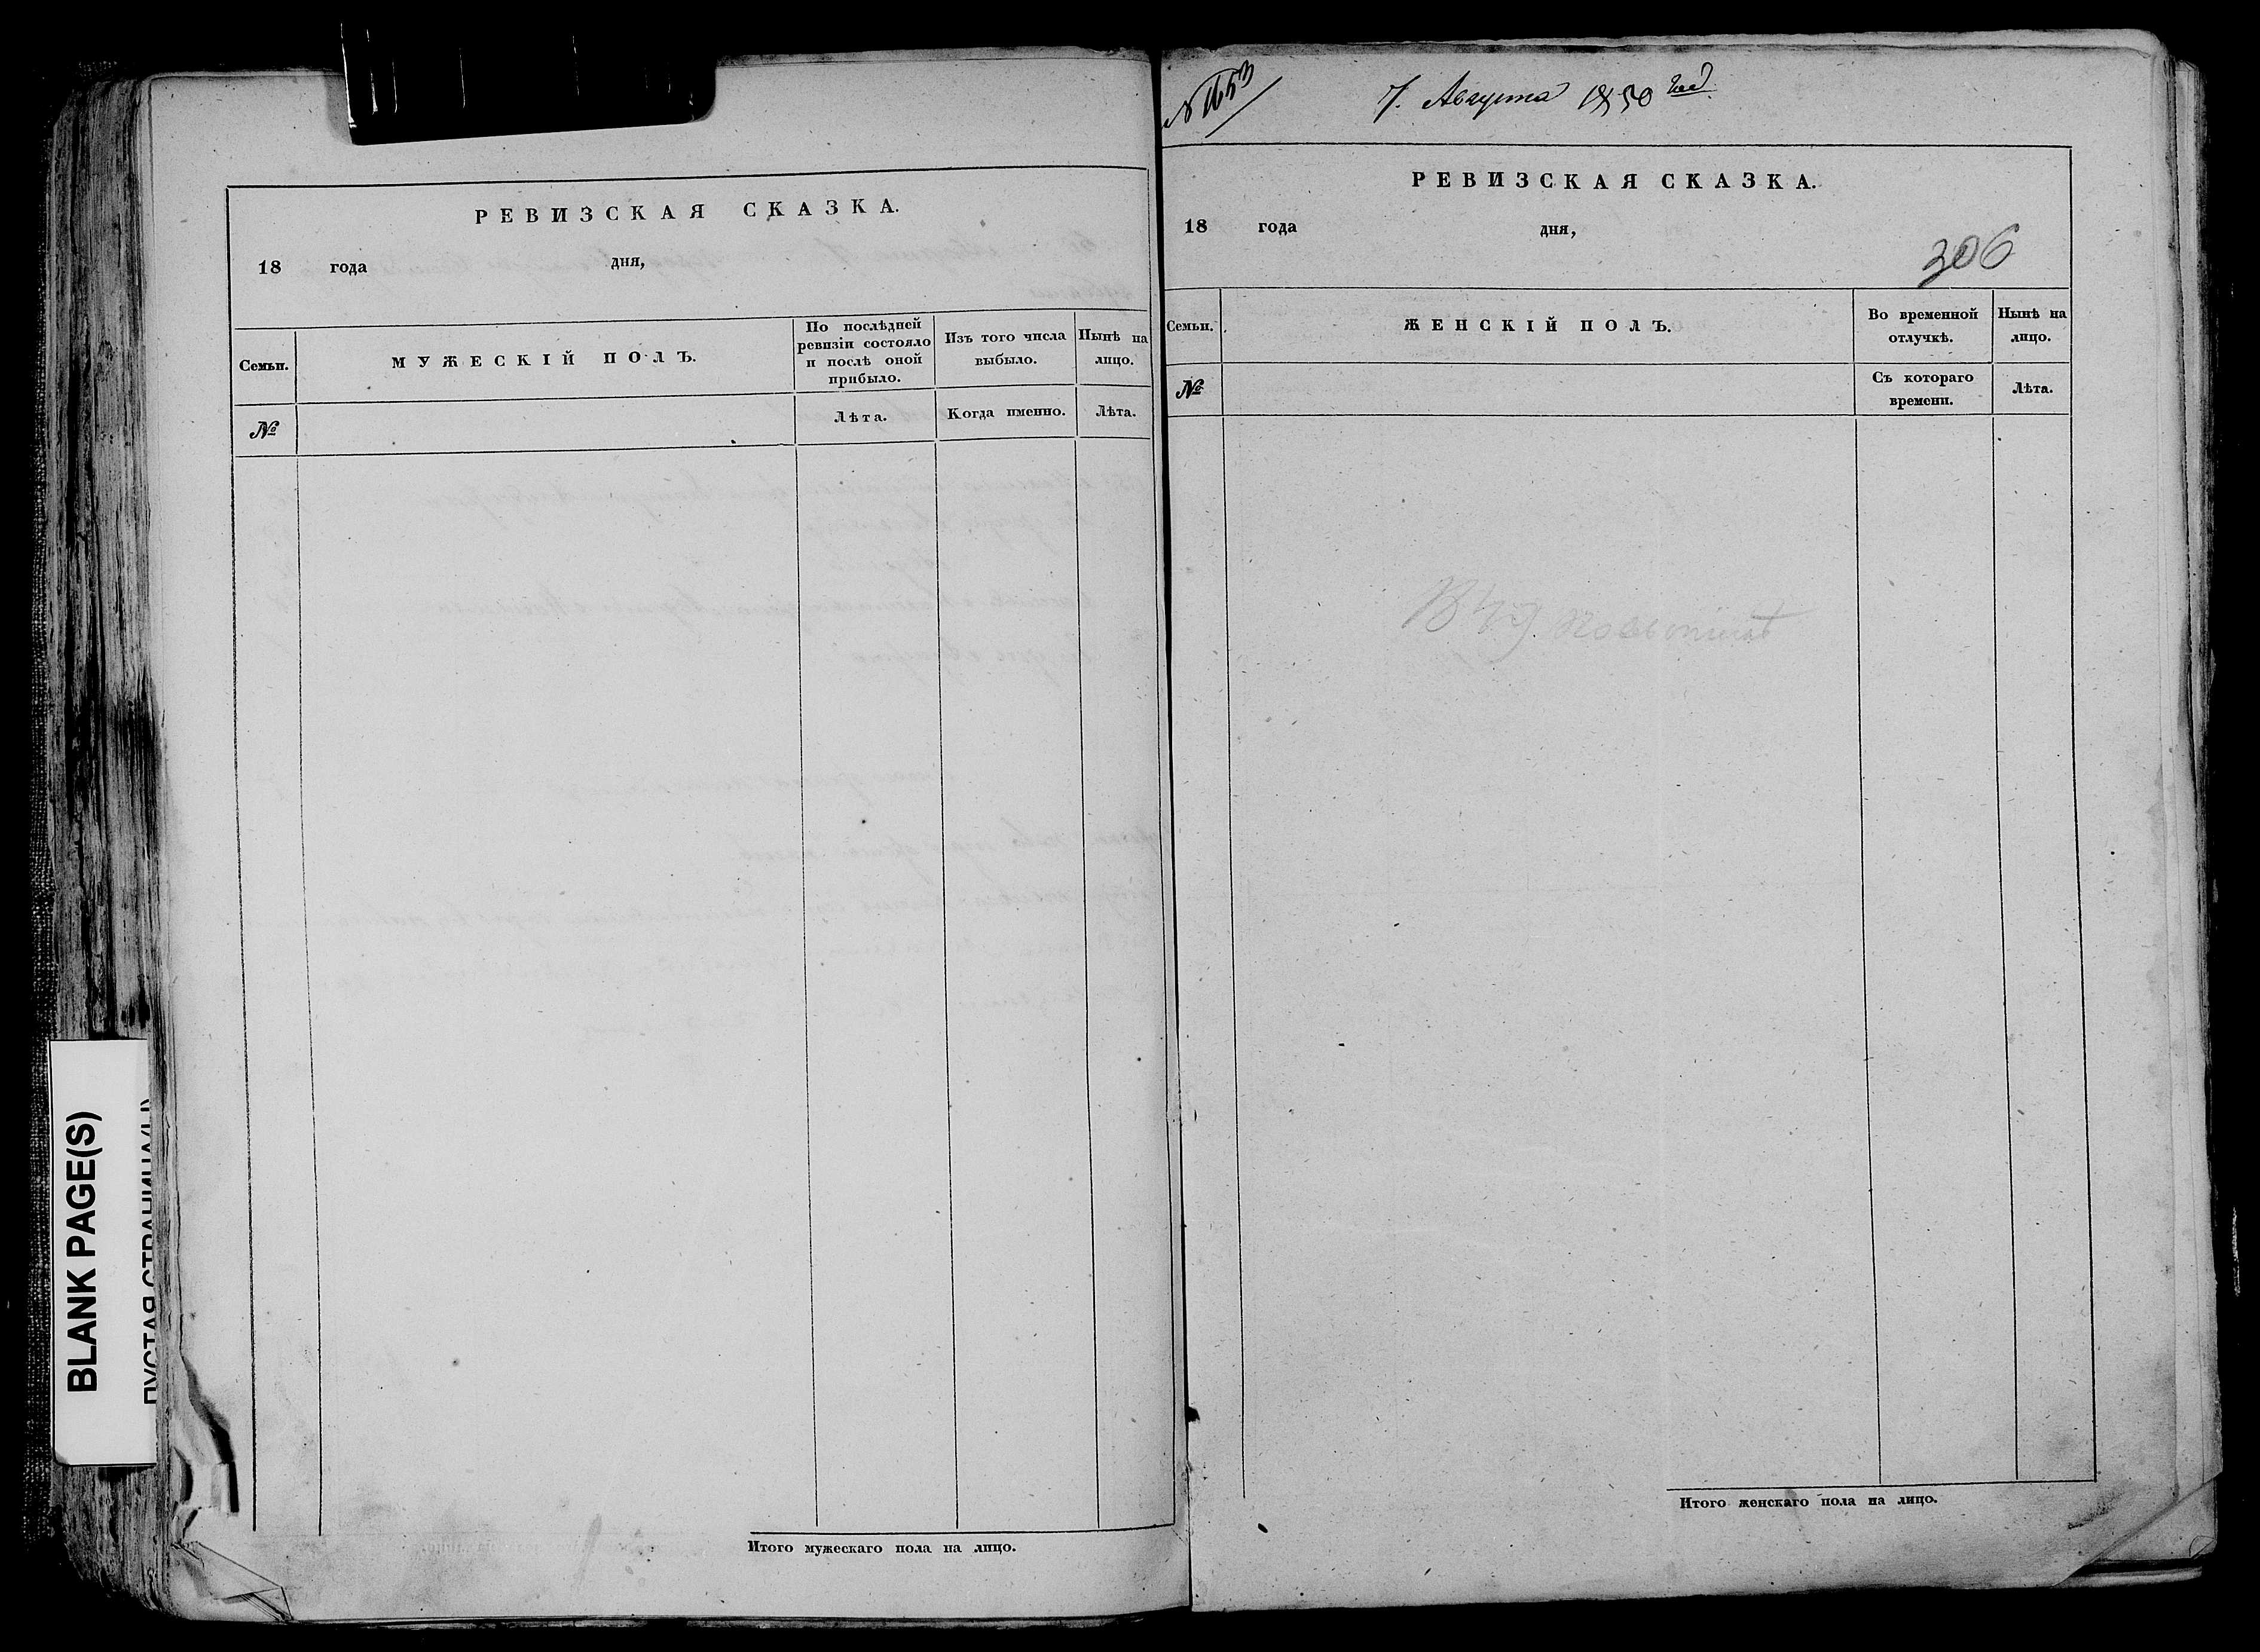 РЕВИЗСКАЯ СКАЗКА.
18 года дня,
Семьи.
МУЖЕСКІЙ ПОЛЪ.
По послѣдней
ревизіи состояло
и послѣ оной
прибыло.
Изъ того числа
выбыло.
Нынѣ на
лицо.
№
Лѣта.
Когда именно.
Лѣта.
Итого мужескаго пола на лицо.
BLANK PAGE(S)
7. Августа 1850 год
РЕВИЗСКАЯ СКАЗКА.
18 года дня,
306
Семьи.
ЖЕНСКІЙ ПОЛЪ.
Во временной
отлучкѣ.
Нынѣ на
лицо.
№
Съ котораго
времени.
Лѣта.
Итого женскаго пола на лицо.